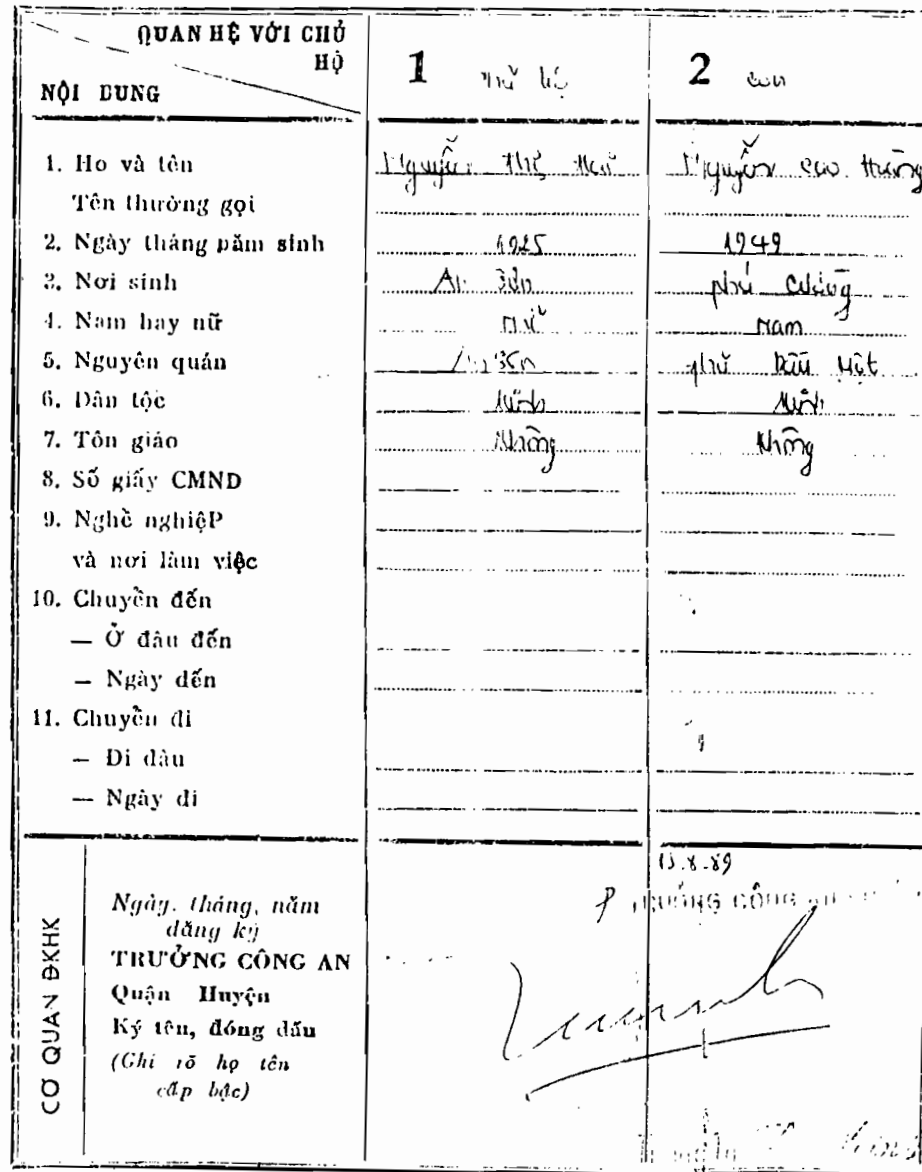 QUAN HỆ VỚI CHỦ
HỘ
NỘI DUNG
1 hộ
2 con
1. Họ và tên Nguyễn Thị Nguyễn cao Hường
Tên thường gọi
2. Ngày tháng năm sinh 1925 1949
3. Nơi sinh An phú
4. Nam hay nữ nữ nam
5. Nguyên quán phú
6. Dân tộc Kinh Kinh
7. Tôn giáo không không
8. Số giấy CMND
9. Nghề nghiệP
và nơi làm việc
10. Chuyển đến
— Ở đâu đến
— Ngày đến
11. Chuyển đi
— Đi đâu
— Ngày đi
CƠ QUAN ĐKHK
Ngày, tháng, năm
đăng ký
TRƯỞNG CÔNG AN
Quận Huyện
Ký tên, đóng dấu
(Ghi rõ họ tên
cấp bậc)
13.8.89
P TRƯỞNG CÔNG AN